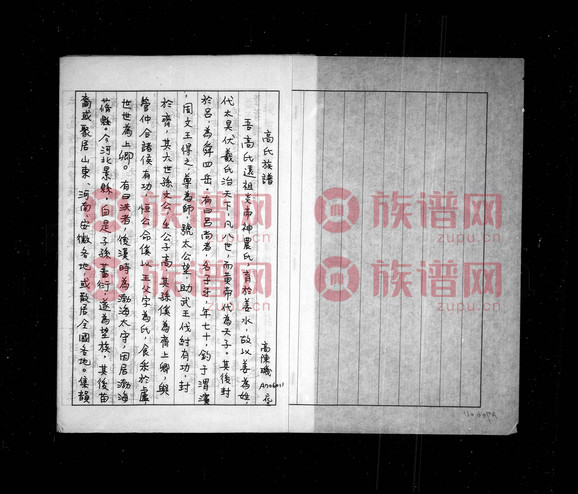 高氏族譜
高陳曦
吾高氏遠祖炎帝神農氏，育於姜水，故以姜為姓，
代太昊伏羲氏治天下，凡八世，而黃帝代為天子。其後封
於呂，為舜四岳，有曰呂尚者，名子牙，年七十，釣于渭濱
，周文王得之，尊為師，號太公望，助武王伐紂有功，封
於齊，其六世孫文公生公子高，其孫傒為齊上卿，與
管仲合諸侯有功，桓公命傒以王父字為氏，食采於盧
世世為上卿。有曰洪者，後漢時為渤海太守，因居渤海
蓨縣，今河北景縣，自是子孫蕃衍，遂為望族，其後苗
裔或聚居山東、河南、安徽各地，或散居全國各地。集韻
族谱网
zupu.cn
族谱网
zupu.cn
族谱网
zupu.cn
族谱网
zupu.cn